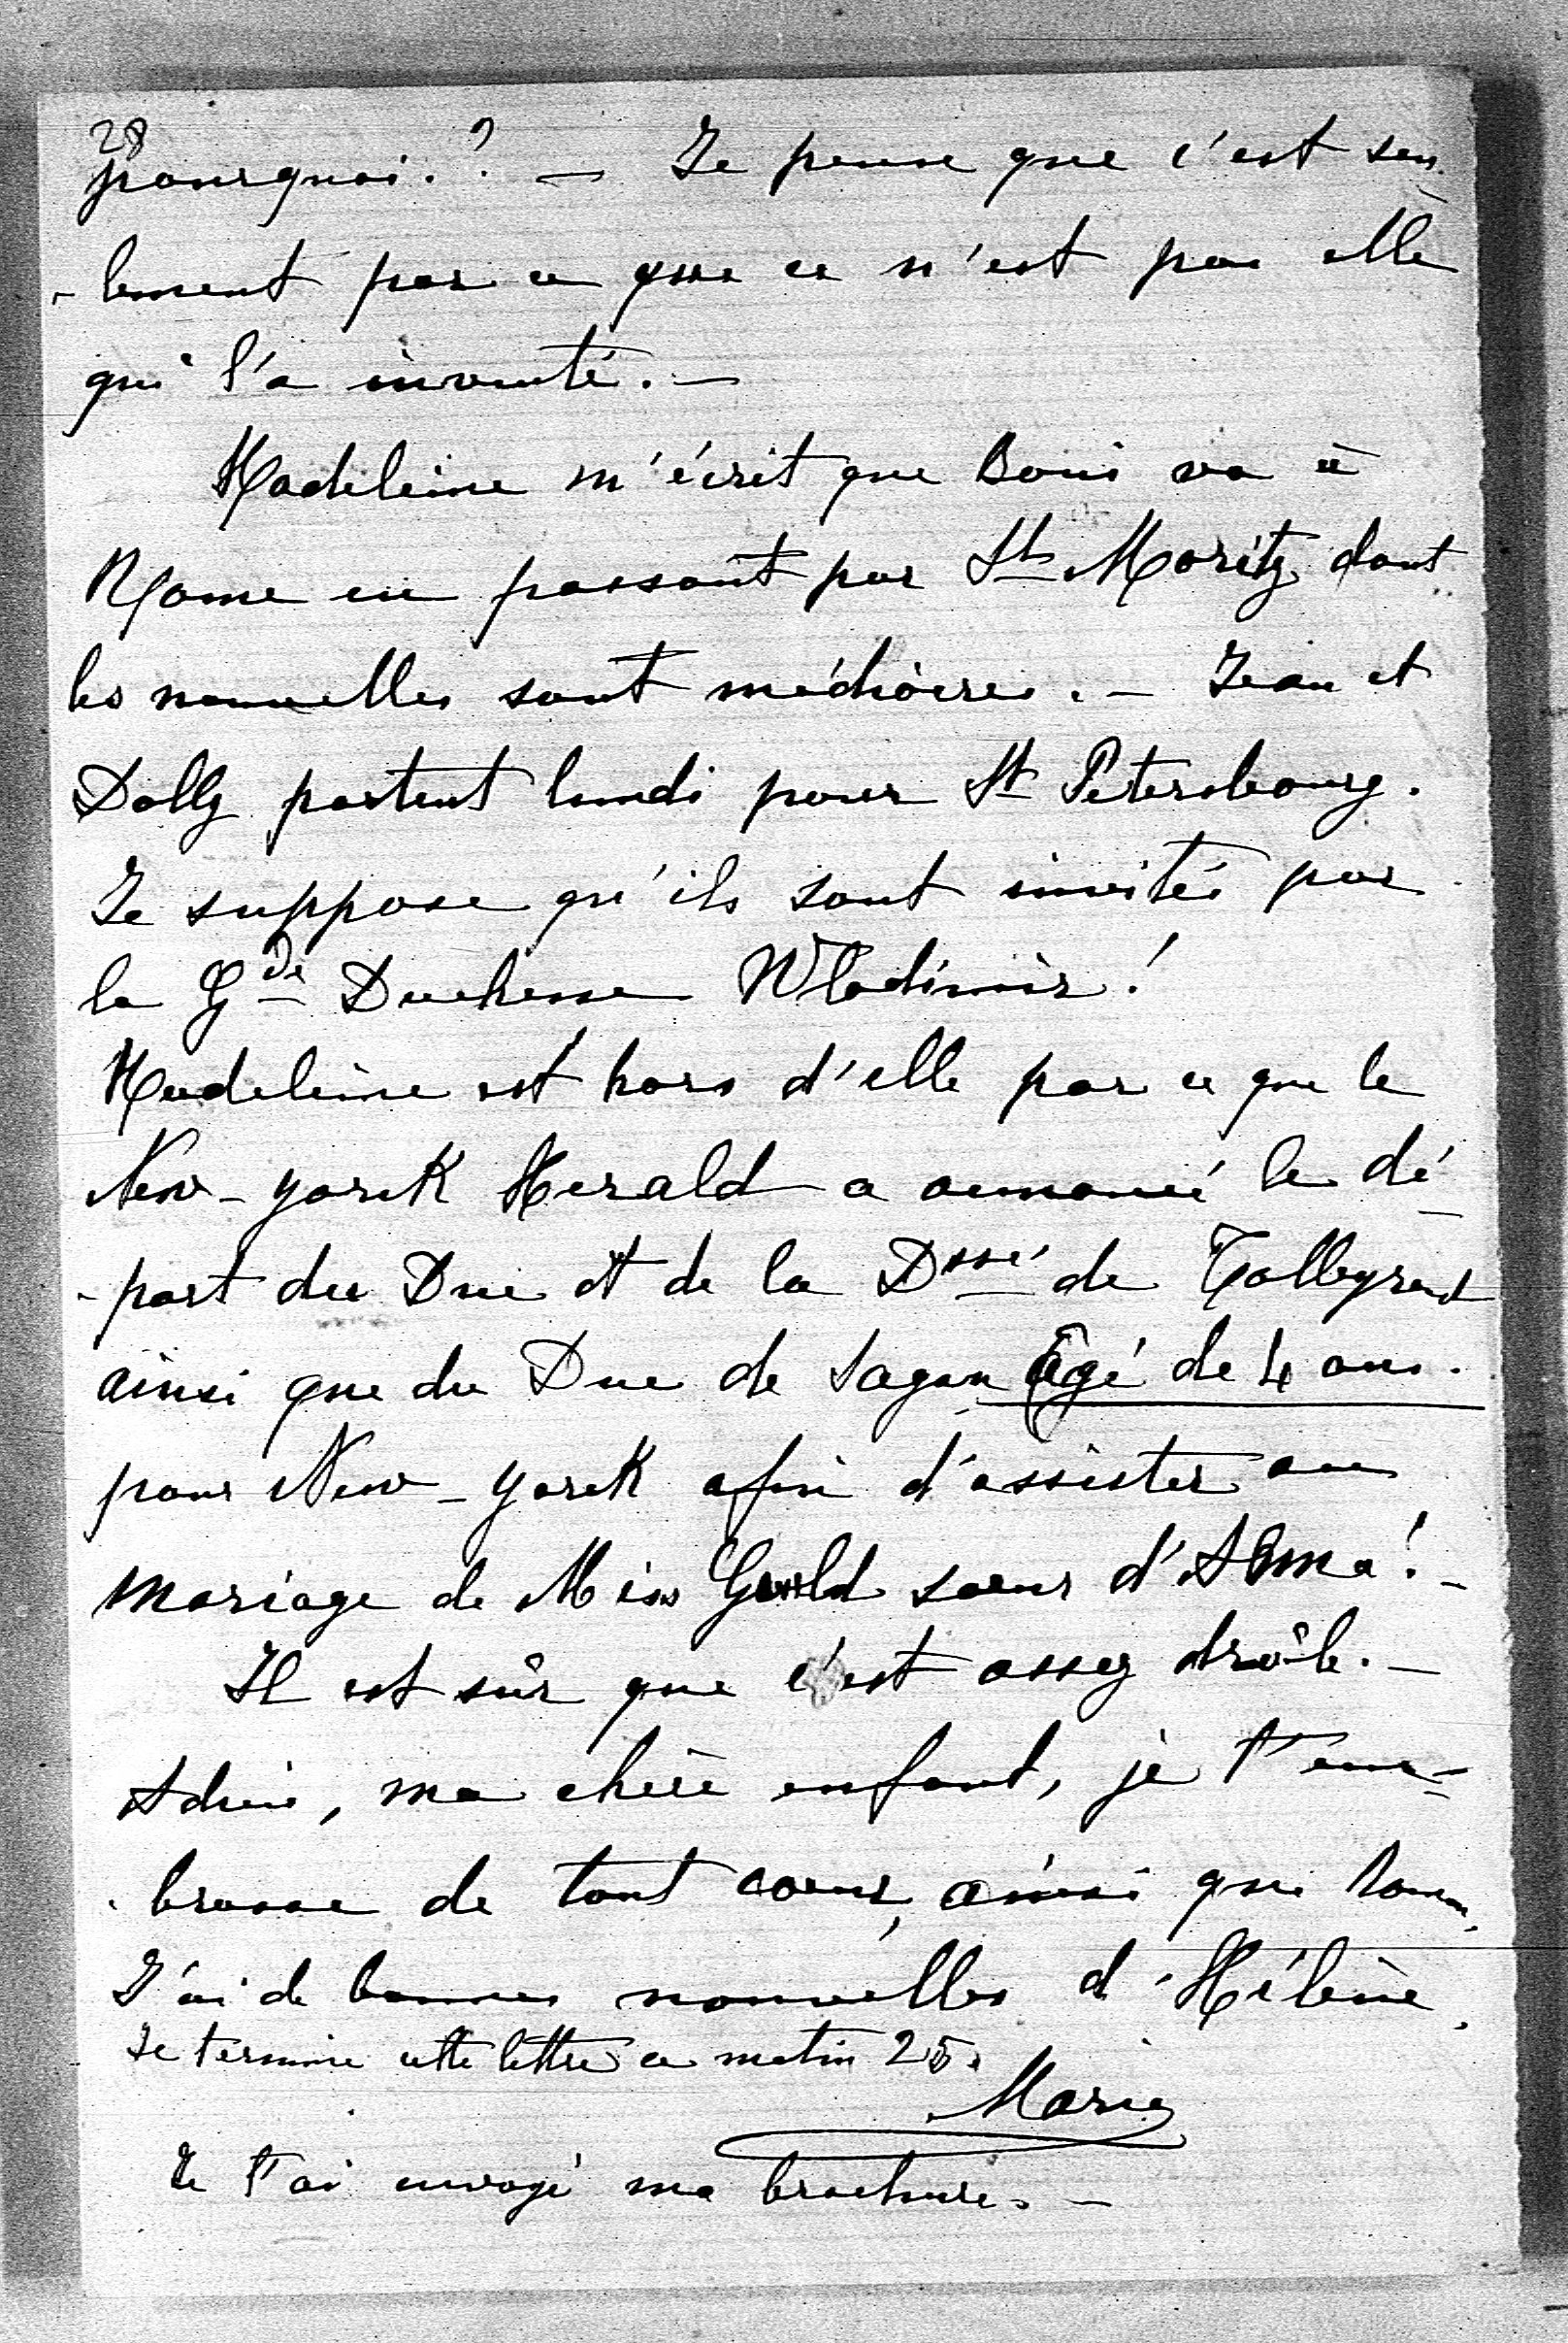 28
pourquoi. ? — Je pense que c'est seu-
-lement par ce que ce n'est pas elle
qui l'a inventé. —
Madeleine m'écrit que Boni va à
Rome en passant par St. Moritz dont
les nouvelles sont médiocres. — Jean et
Dolly partent lundi pour St Petersbourg.
Je suppose qu'ils sont invités par
la Gde Duchesse Wladimir !
Madeleine est hors d'elle par ce que le
New-york Herald a annoncé le dé-
-part du Duc et de la Dsse de Talleyrand
ainsi que du Duc de Sagan âgé de 4 ans.
pour New-york afin d'assister au
mariage de Miss Gould sœur d'Anna ! —
Il est sûr que c'est assez drôle. —
Adieu, ma chère enfant, je t'em-
-brasse de tout cœur, ainsi que
J'ai de bonnes nouvelles d'Hélène.
Je termine cette lettre ce matin 25.
Marie
Je t'ai envoyé ma brochure. —